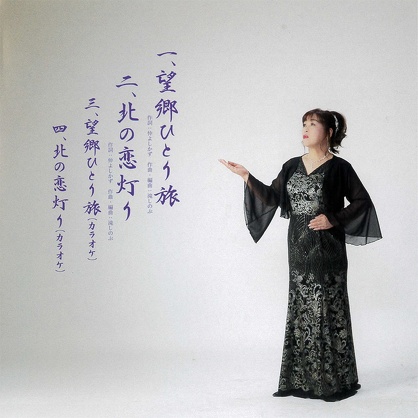 一、望郷ひとり旅
作詞・仲よしかず　作曲・編曲・流しのぶ
二、北の恋灯り
作詞・仲よしかず　作曲・編曲・流しのぶ
三、望郷ひとり旅（カラオケ）
四、北の恋灯り（カラオケ）